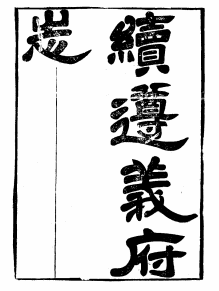 續遵義府
志